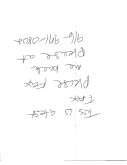 This is a test
Fax
please fax
me back
please at
916-991-0804